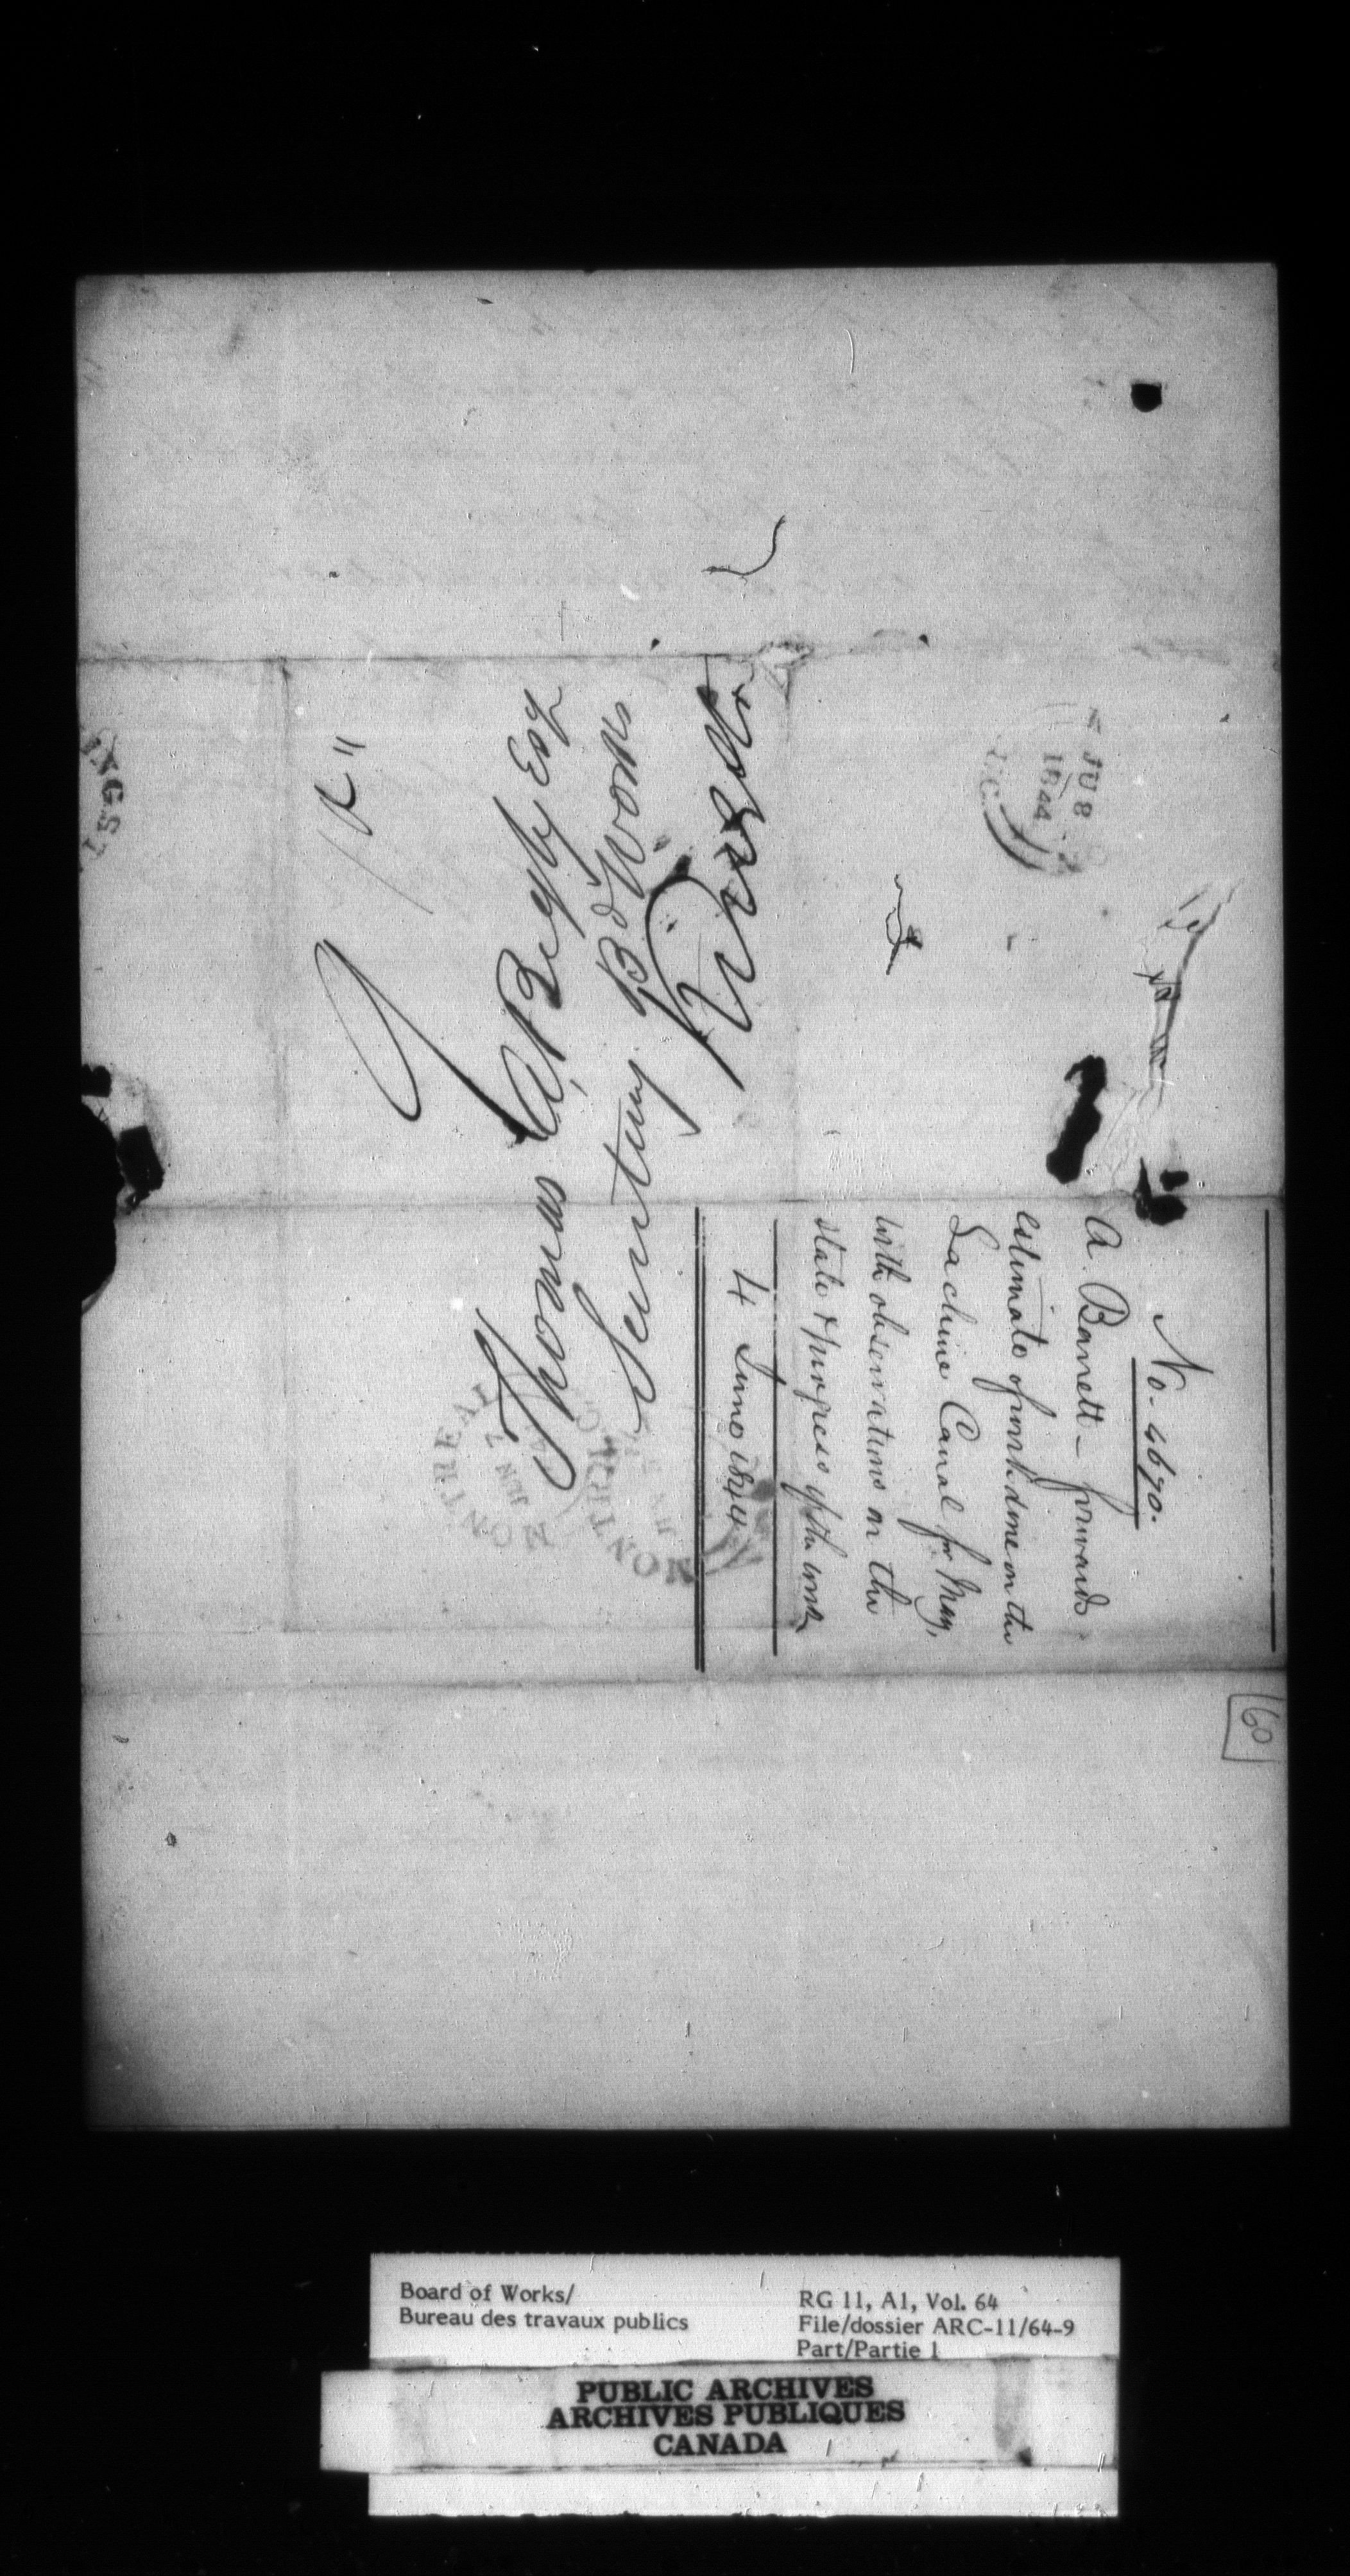 Thomas A. Begly Esq
Secretary Bd Works
Kingston
No. 4690.
A. Barrett — forwards
estimate of work done on the
Lachine Canal for May,
with observations on the
state & progress of the work
4 June 1844
JU 8
1844
MONTREAL
JUN 7
MONTREAL
60
Board of Works/
Bureau des travaux publics
RG 11, A1, Vol. 64
File/dossier ARC-11/64-9
Part/Partie 1
PUBLIC ARCHIVES
ARCHIVES PUBLIQUES
CANADA